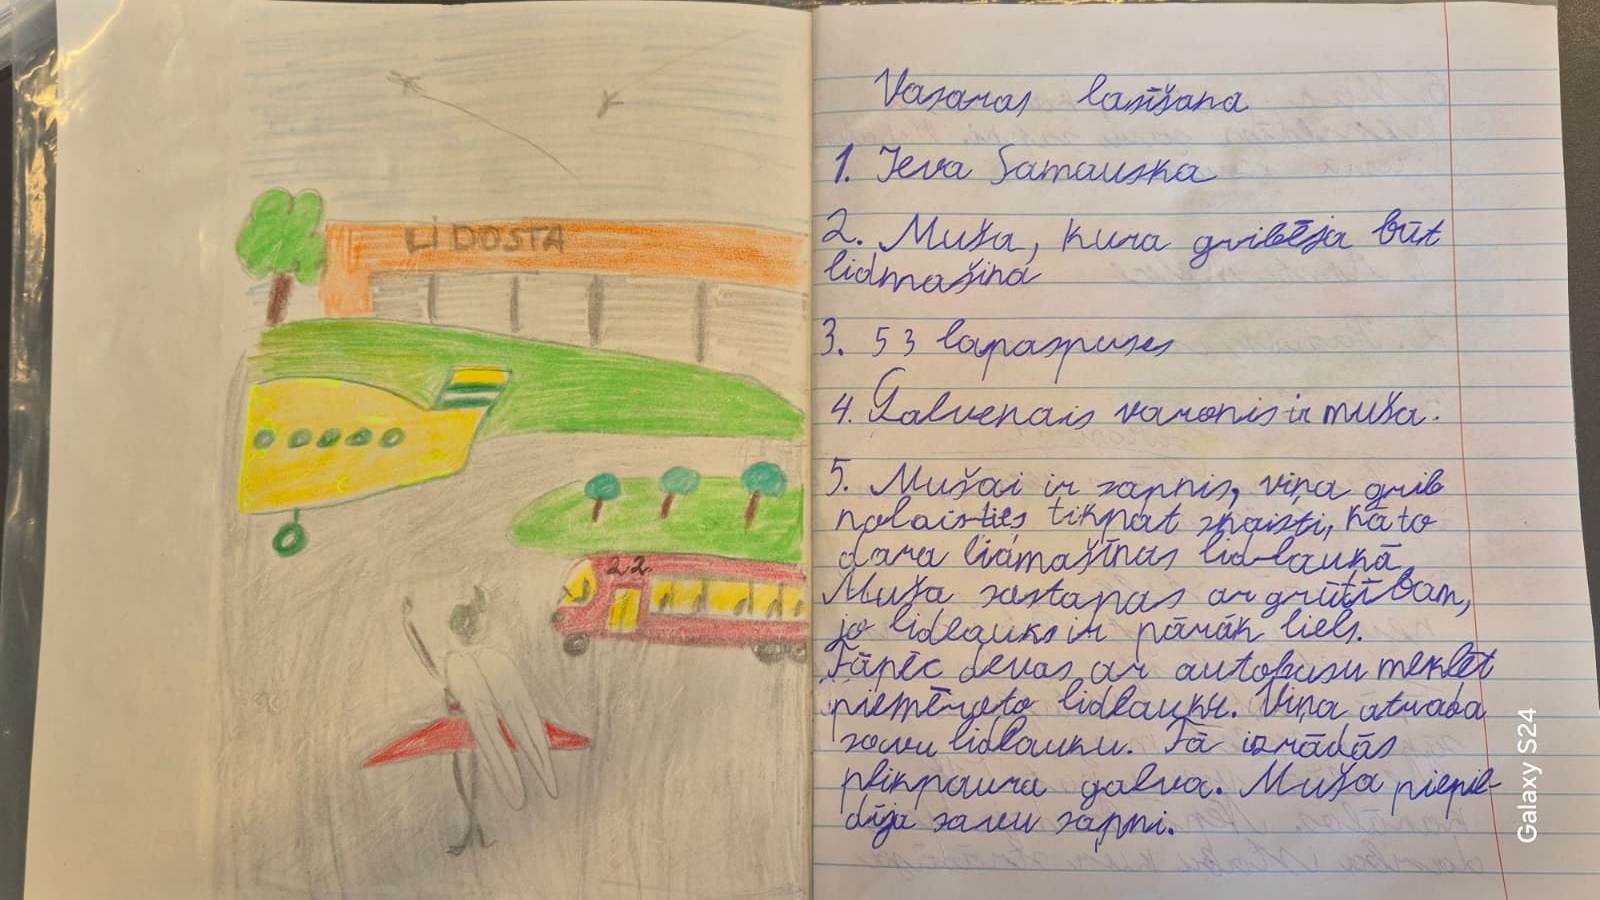 LĪDOSTA
22.
Vasaras lasīšana
1. Ieva Samauska
2. Muša, kura gribēja būt
lidmašina
3. 53 lapaspuses
4. Galvenais varonis ir muša.
5. Mušai ir sapnis, viņa grib
nolaisties tikpat skaisti, kā to
dara lidmašīnas lid-laukā
Muša sastapas ar grūtībam,
jo lidlauks ir pārāk liels.
Tāpēc devas ar autobusu meklēt
piemēroto lidlauku. Viņa atrada
savu lidlauku. Tā izrādās
plikpaura galva. Muša piepil-
dīja savu sapni.
Galaxy S24